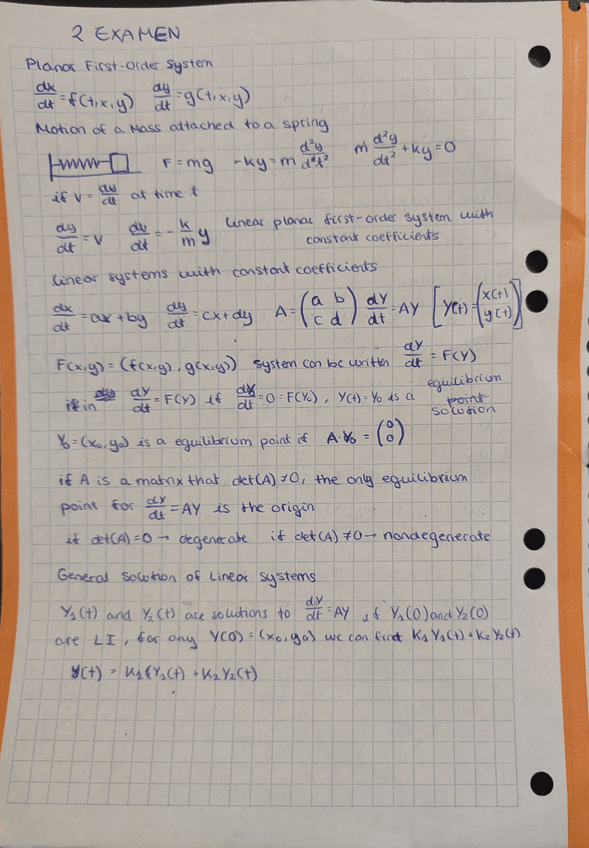 2 EXAMEN
Planar First-Order System
dx/dt = f(t,x,y) dy/dt = g(t,x,y)
Motion of a Mass attached to a spring
F = mg -ky = m d²y/dt² m d²y/dt² + ky = 0
if v = dy/dt at time t
dy/dt = v dv/dt = -k/m y Linear planar first-order system with
constant coefficients
Linear systems with constant coefficients
dx/dt = ax + by dy/dt = cx + dy A = (a b c d) dY/dt = AY [Y(t) = (x(t) y(t))]
F(x,y) = (f(x,y), g(x,y)) system can be written dY/dt = F(Y)
if in dY/dt = F(Y) if dY/dt = 0 = F(Y₀), Y(t) = Y₀ is a equilibrium point
solution
Y₀ = (x₀,y₀) is a equilibrium point if A·Y₀ = (0 0)
if A is a matrix that det(A) ≠ 0, the only equilibrium
point for dY/dt = AY is the origin
if det(A) = 0 → degenerate if det(A) ≠ 0 → nondegenerate
General Solution of Linear Systems
Y₁(t) and Y₂(t) are solutions to dY/dt = AY if Y₁(0) and Y₂(0)
are LI, for any Y(0) = (x₀,y₀) we can find K₁Y₁(t) + K₂Y₂(t)
Y(t) = K₂Y₁(t) + K₂Y₂(t)